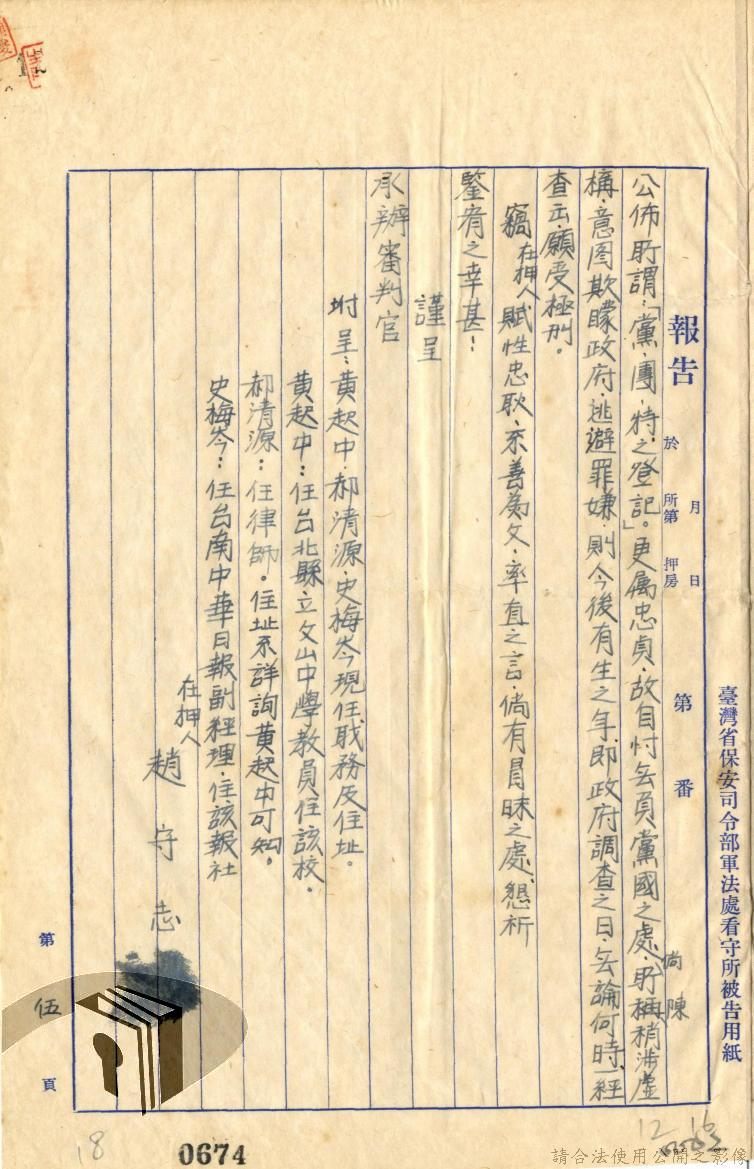 臺灣省保安司令部軍法處看守所被告用紙
報告 於 月 日
所第 押房
第 番
公佈所謂:「黨、團、特之登記」。更属忠貞、故自忖無負黨國之處、倘所陳稍涉虛
構、意图欺矇政府、逃避罪嫌、則今後有生之年、即政府調查之日、無論何時、一經
查出、願受極刑。
竊在押人賦性忠耿、不善為文、率直之言、倘有冒昧之處、懇祈
鑒宥之幸甚!
謹呈
承辦審判官
坿呈:黄起中、郝清源、史梅岑現任職務及住址。
黄起中:任台北縣立文山中學教員住該校。
郝清源:任律師。住址不詳詢黄起中可知。
史梅岑:任台南中華日報副經理、住該報社
在押人 趙守志
第 伍 頁
18
0674
請合法使用公開之影像